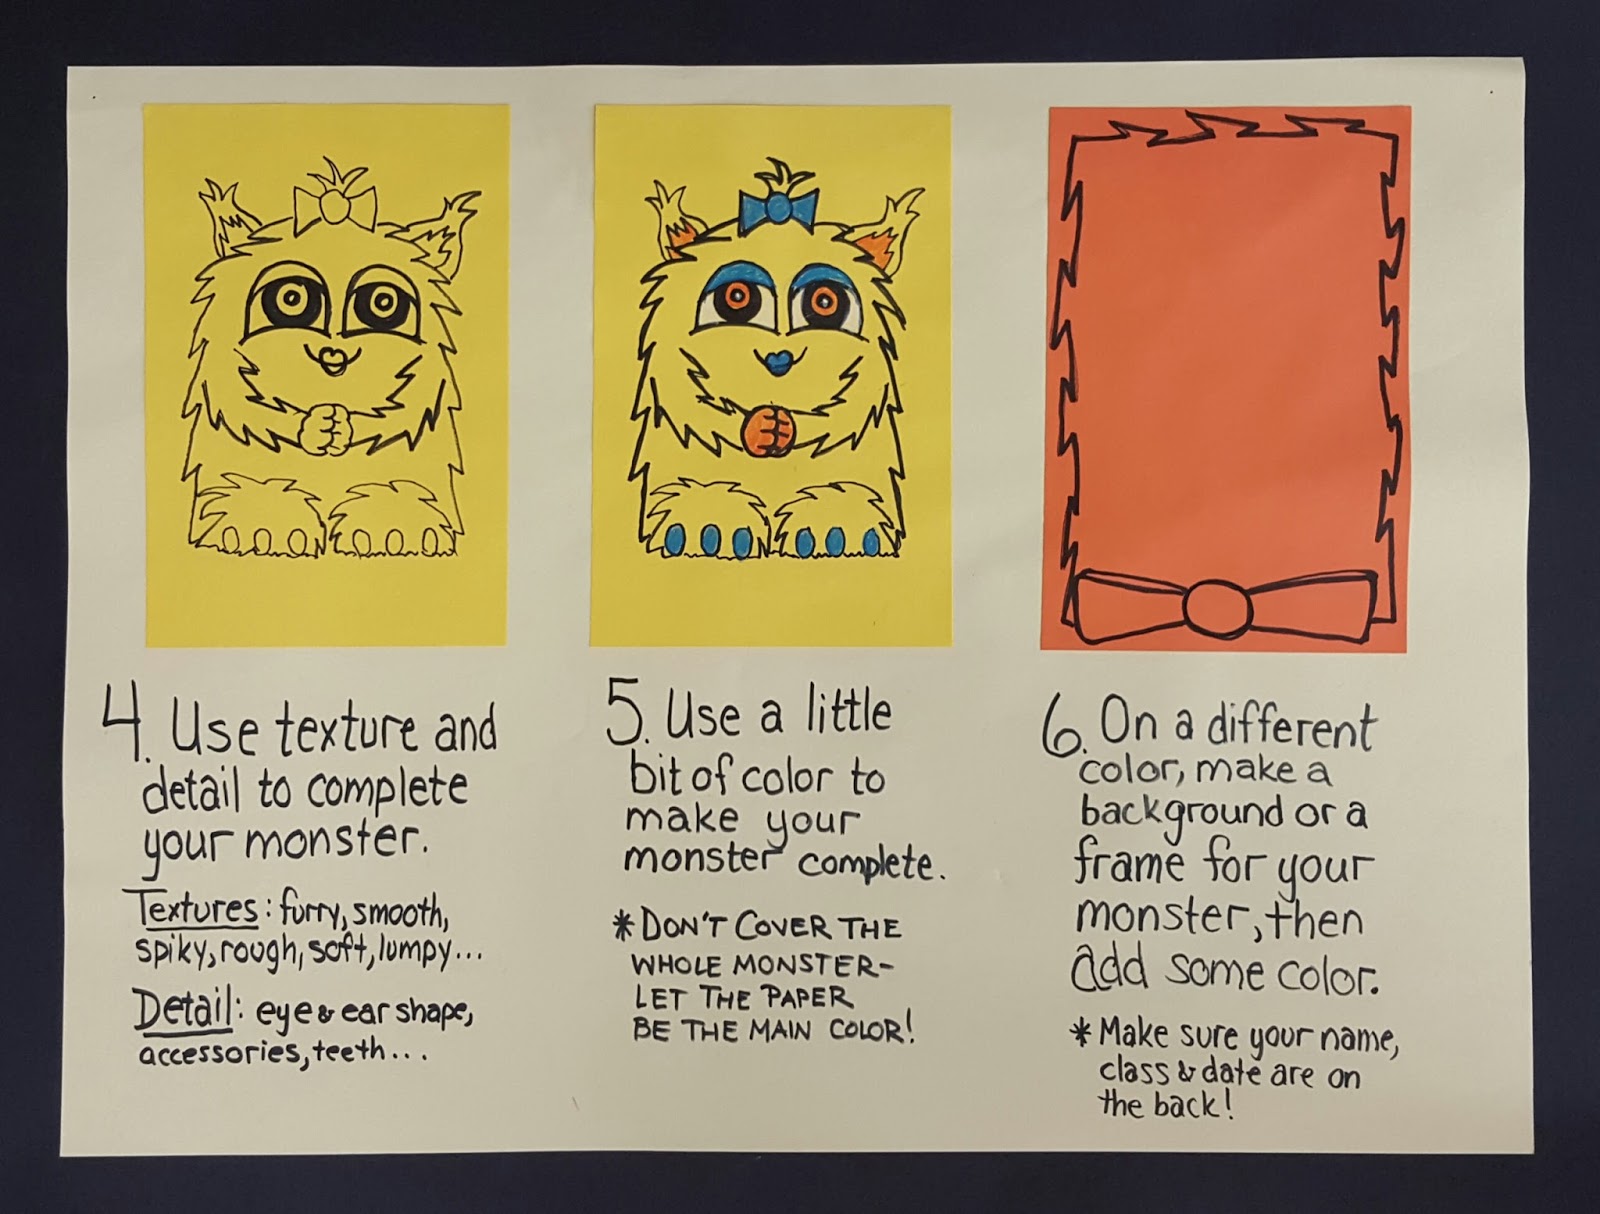 4. Use texture and
detail to complete
your monster.
Textures: furry, smooth,
spiky, rough, soft, lumpy...
Detail: eye & ear shape,
accessories, teeth...
5. Use a little
bit of color to
make your
monster complete.
* DON'T COVER THE
WHOLE MONSTER-
LET THE PAPER
BE THE MAIN COLOR!
6. On a different
color, make a
background or a
frame for your
monster, then
add some color.
* Make sure your name,
class & date are on
the back!